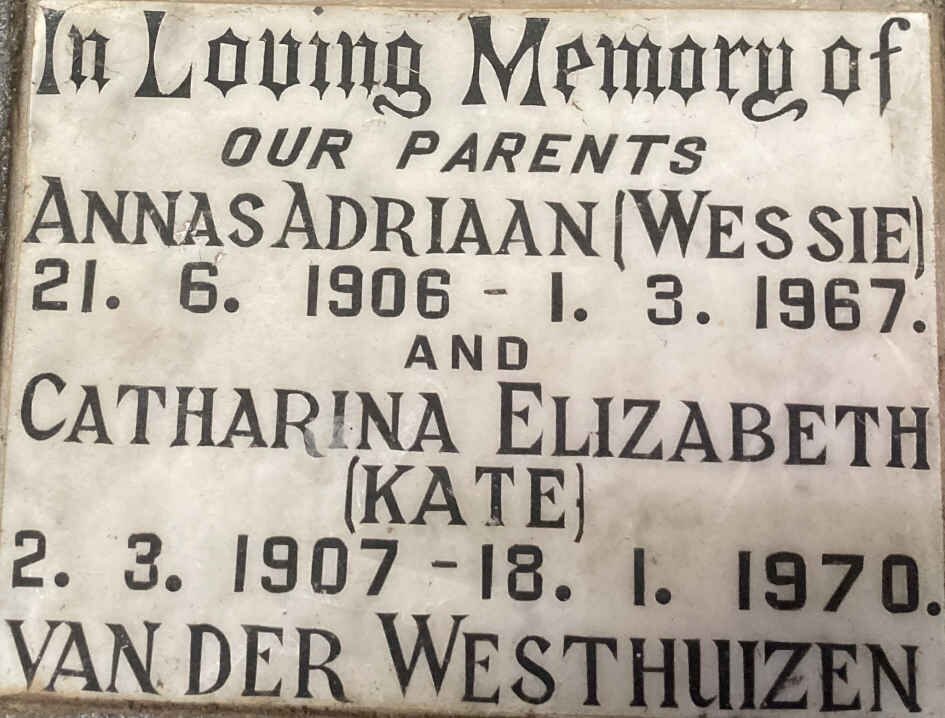 In Loving Memory of
OUR PARENTS
ANNAS ADRIAAN (WESSIE)
21. 6. 1906 - 1. 3. 1967.
AND
CATHARINA ELIZABETH
(KATE)
2. 3. 1907 - 18. 1. 1970.
VAN DER WESTHUIZEN